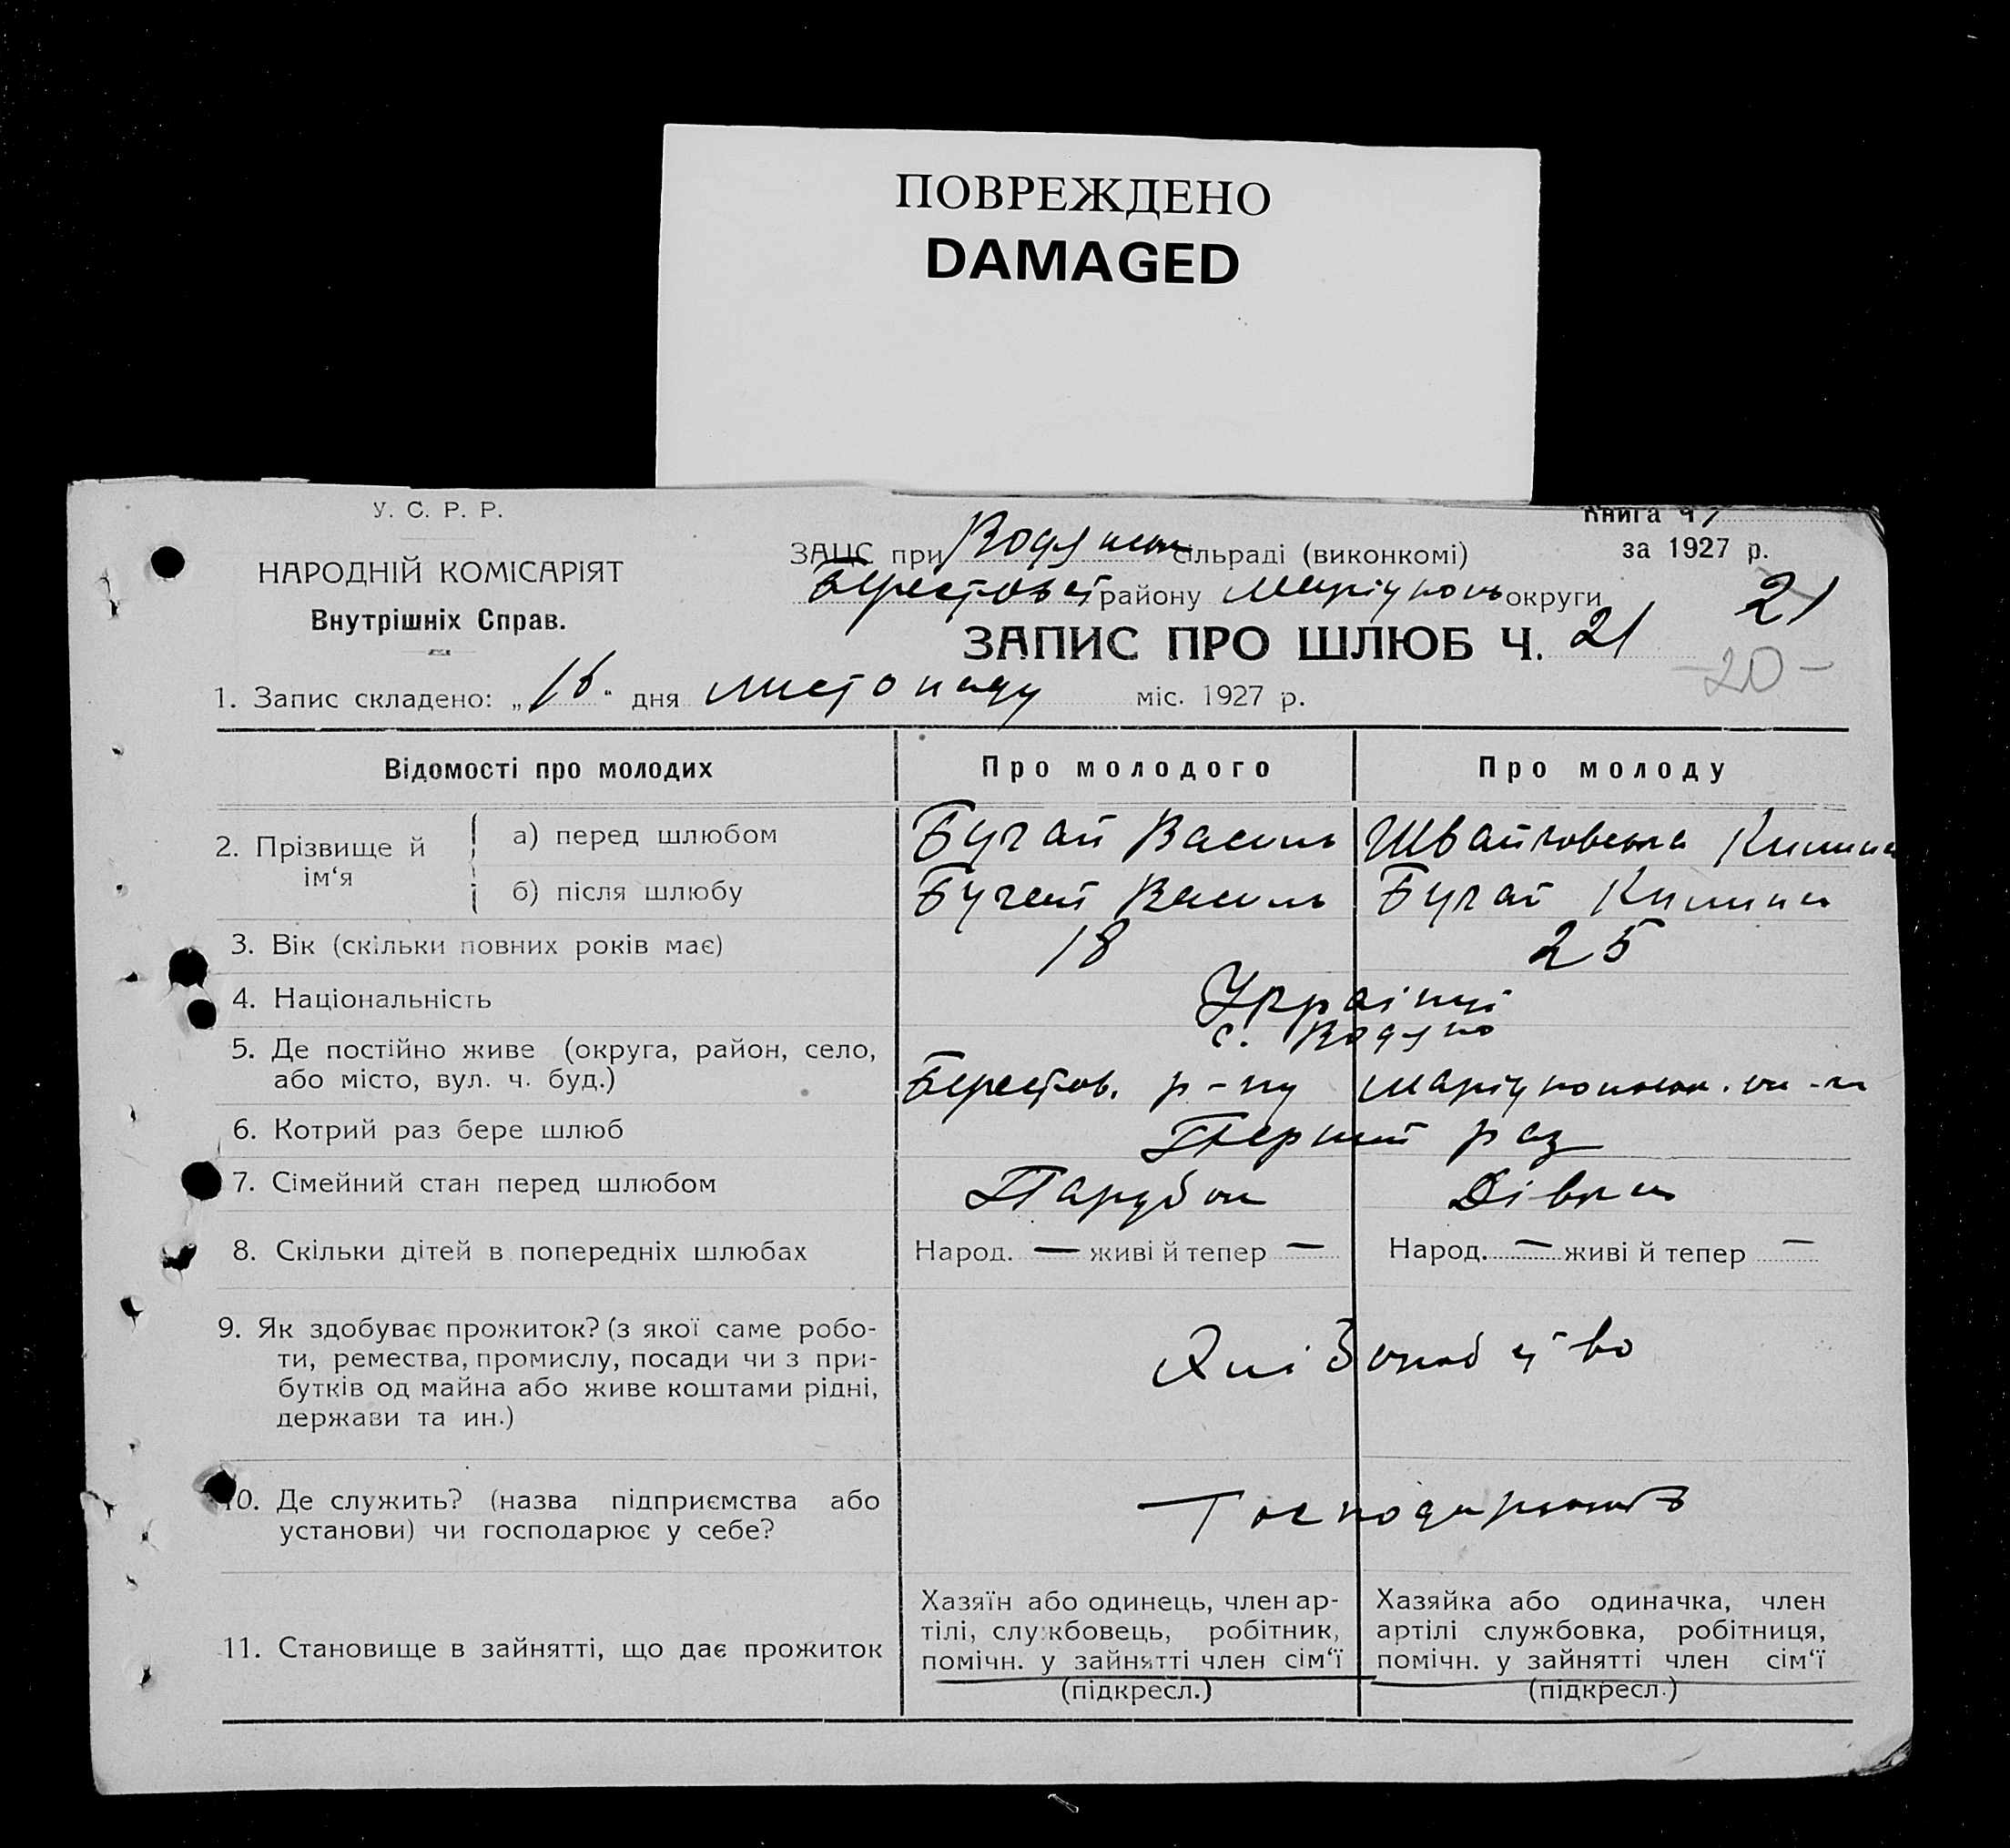 ПОВРЕЖДЕНО
DAMAGED
У. С. Р. Р.
НАРОДНІЙ КОМІСАРІЯТ
Внутрішніх Справ.
Книга ч
за 1927 р.
ЗАЦС при сільраді (виконкомі)
району округи
21
ЗАПИС ПРО ШЛЮБ Ч. 21
-20-
1. Запис складено: „16“ дня листопаду міс. 1927 р.
Відомості про молодих Про молодого Про молоду
2. Прізвище й ім‘я
а) перед шлюбом Бугай Василь Швайковська Килина
б) після шлюбу Бугай Василь Бугай Килина
3. Вік (скільки повних років має) 18 25
4. Національність Українці
с. Водяно
5. Де постійно живе (округа, район, село,
або місто, вул. ч. буд.) Берестов. р-ну
6. Котрий раз бере шлюб Перший раз
7. Сімейний стан перед шлюбом Парубок Дівка
8. Скільки дітей в попередніх шлюбах Народ. — живі й тепер — Народ. — живі й тепер —
9. Як здобуває прожиток? (з якої саме робо-
ти, ремества, промислу, посади чи з при-
бутків од майна або живе коштами рідні,
держави та ин.)
Хліборобство
10. Де служить? (назва підприємства або
установи) чи господарює у себе?
11. Становище в зайнятті, що дає прожиток
Хазяїн або одинець, член ар-
тілі, службовець, робітник,
помічн. у зайнятті член сім‘ї
(підкресл.)
Хазяйка або одиначка, член
артілі службовка, робітниця,
помічн. у зайнятті член сім‘ї
(підкресл.)